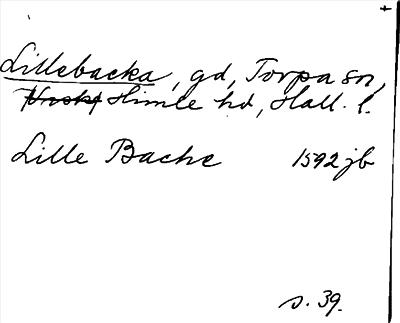 Lillebacka, gd, Torpa sn,
Himle hd, Hall. l.
Lille Bache 1592 jb
s. 39.